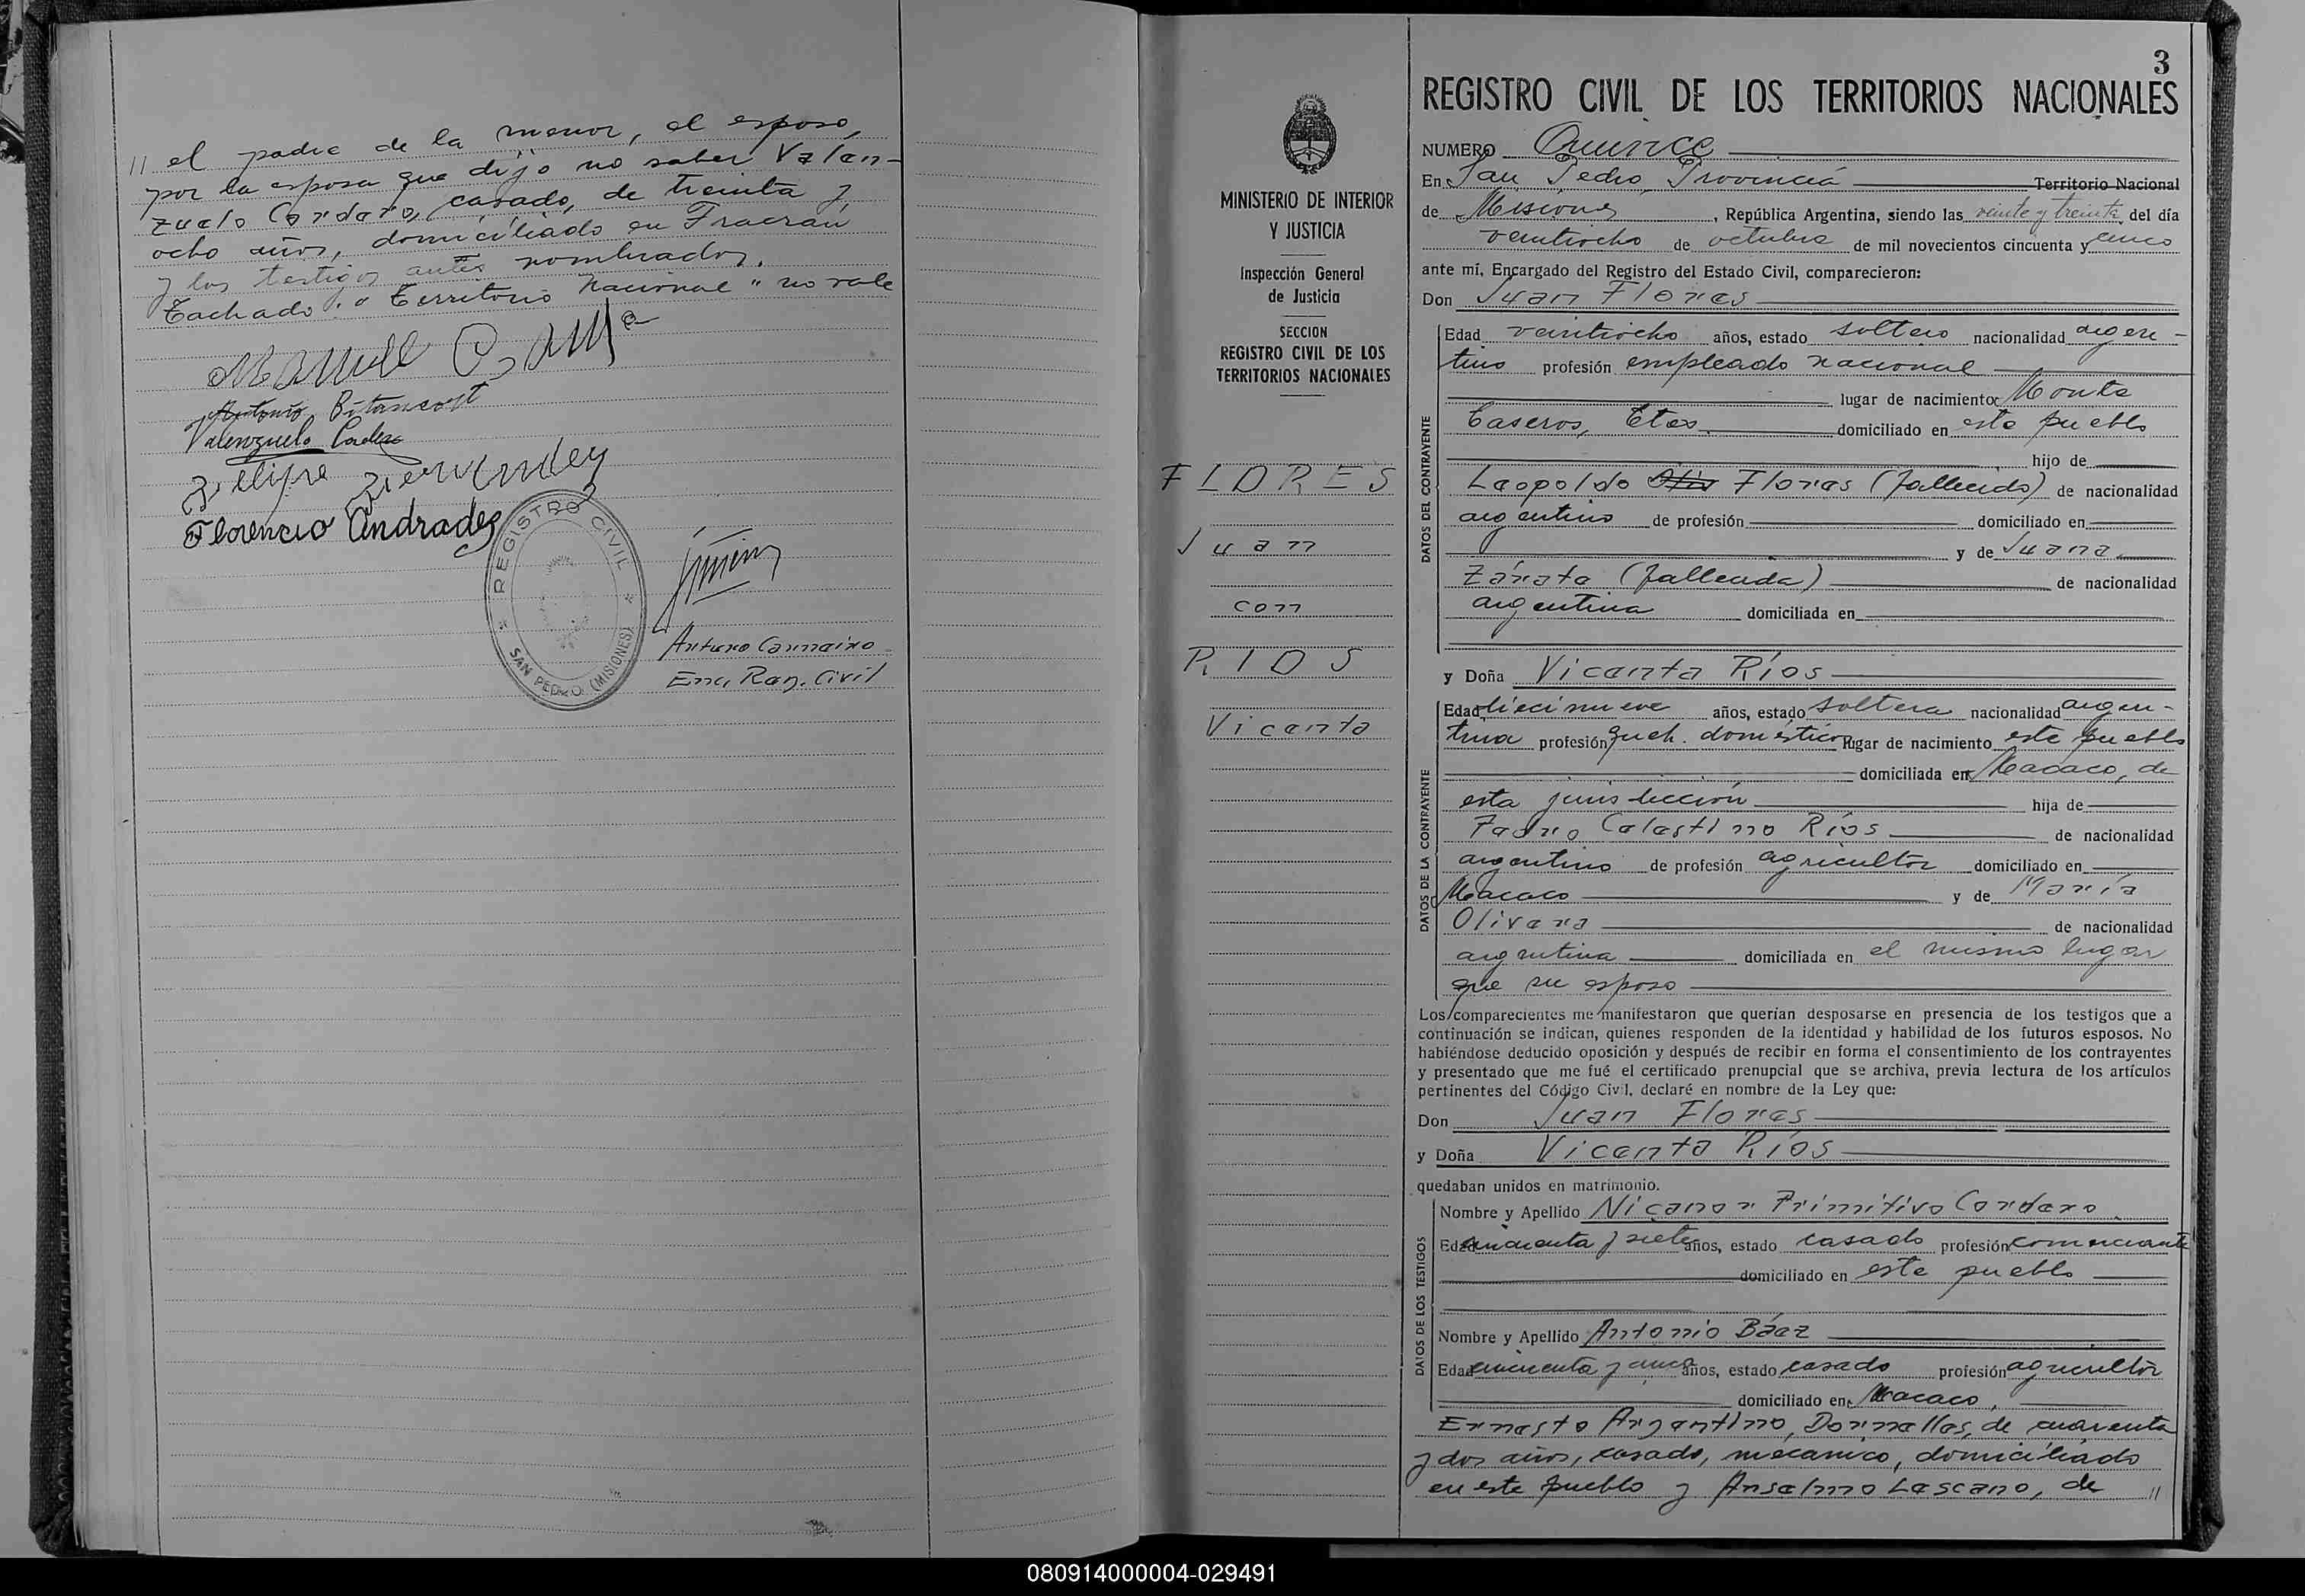 // el padre de la menor, el esposo,
por la esposa que dijo no saber Valen-
zuelo Cordero, casado, de treinta y
ocho años, domiciliado en Fracrán
y los testigos antes nombrados.
Tachado: "Territorio Nacional" no vale
Manuel
Antonio Bitancort
Valenzuelo Cordero
Felipe Fernandez
Florencio Andrades
REGISTRO CIVIL
SAN PEDRO (MISIONES)
Arturo
Enc. Reg. Civil
MINISTERIO DE INTERIOR
Y JUSTICIA
Inspección General
de Justicia
SECCION
REGISTRO CIVIL DE LOS
TERRITORIOS NACIONALES
FLORES
Juan
con
RIOS
Vicenta
3
REGISTRO CIVIL DE LOS TERRITORIOS NACIONALES
NUMERO Quince
En San Pedro, Provincia Territorio Nacional
de Misiones, República Argentina, siendo las veinte y treinta del día
veintiocho de octubre de mil novecientos cincuenta y cinco
ante mí, Encargado del Registro del Estado Civil, comparecieron:
Don Juan Flores
DATOS DEL CONTRAYENTE
Edad veintiocho años, estado soltero nacionalidad argen-
tino profesión empleado nacional
lugar de nacimiento Monte
Caseros, Ctes. domiciliado en este pueblo
hijo de
Leopoldo Flores (fallecido) de nacionalidad
argentino de profesión domiciliado en
y de Juana
Zárate (fallecida) de nacionalidad
argentina domiciliada en
y Doña Vicenta Ríos
DATOS DE LA CONTRAYENTE
Edad diecinueve años, estado soltera nacionalidad argen-
tina profesión queh. domésticos lugar de nacimiento este pueblo
domiciliada en Macaco, de
esta jurisdicción hija de
Pedro Celestino Ríos de nacionalidad
argentino de profesión agricultor domiciliado en
Macaco y de María
Olivera de nacionalidad
argentina domiciliada en el mismo lugar
que su esposo
Los comparecientes me manifestaron que querían desposarse en presencia de los testigos que a
continuación se indican, quienes responden de la identidad y habilidad de los futuros esposos. No
habiéndose deducido oposición y después de recibir en forma el consentimiento de los contrayentes
y presentado que me fué el certificado prenupcial que se archiva, previa lectura de los artículos
pertinentes del Código Civil, declaré en nombre de la Ley que:
Don Juan Flores
y Doña Vicenta Ríos
quedaban unidos en matrimonio.
DATOS DE LOS TESTIGOS
Nombre y Apellido Nicanor Primitivo Cordero
Edad cincuenta y siete años, estado casado profesión comerciante
domiciliado en este pueblo
Nombre y Apellido Antonio Báez
Edad cincuenta y cinco años, estado casado profesión agricultor
domiciliado en Macaco,
Ernesto Argentino Dornelles, de cuarenta
y dos años, casado, mecánico, domiciliado
en este pueblo y Anselmo Lescano, de //
080914000004-029491